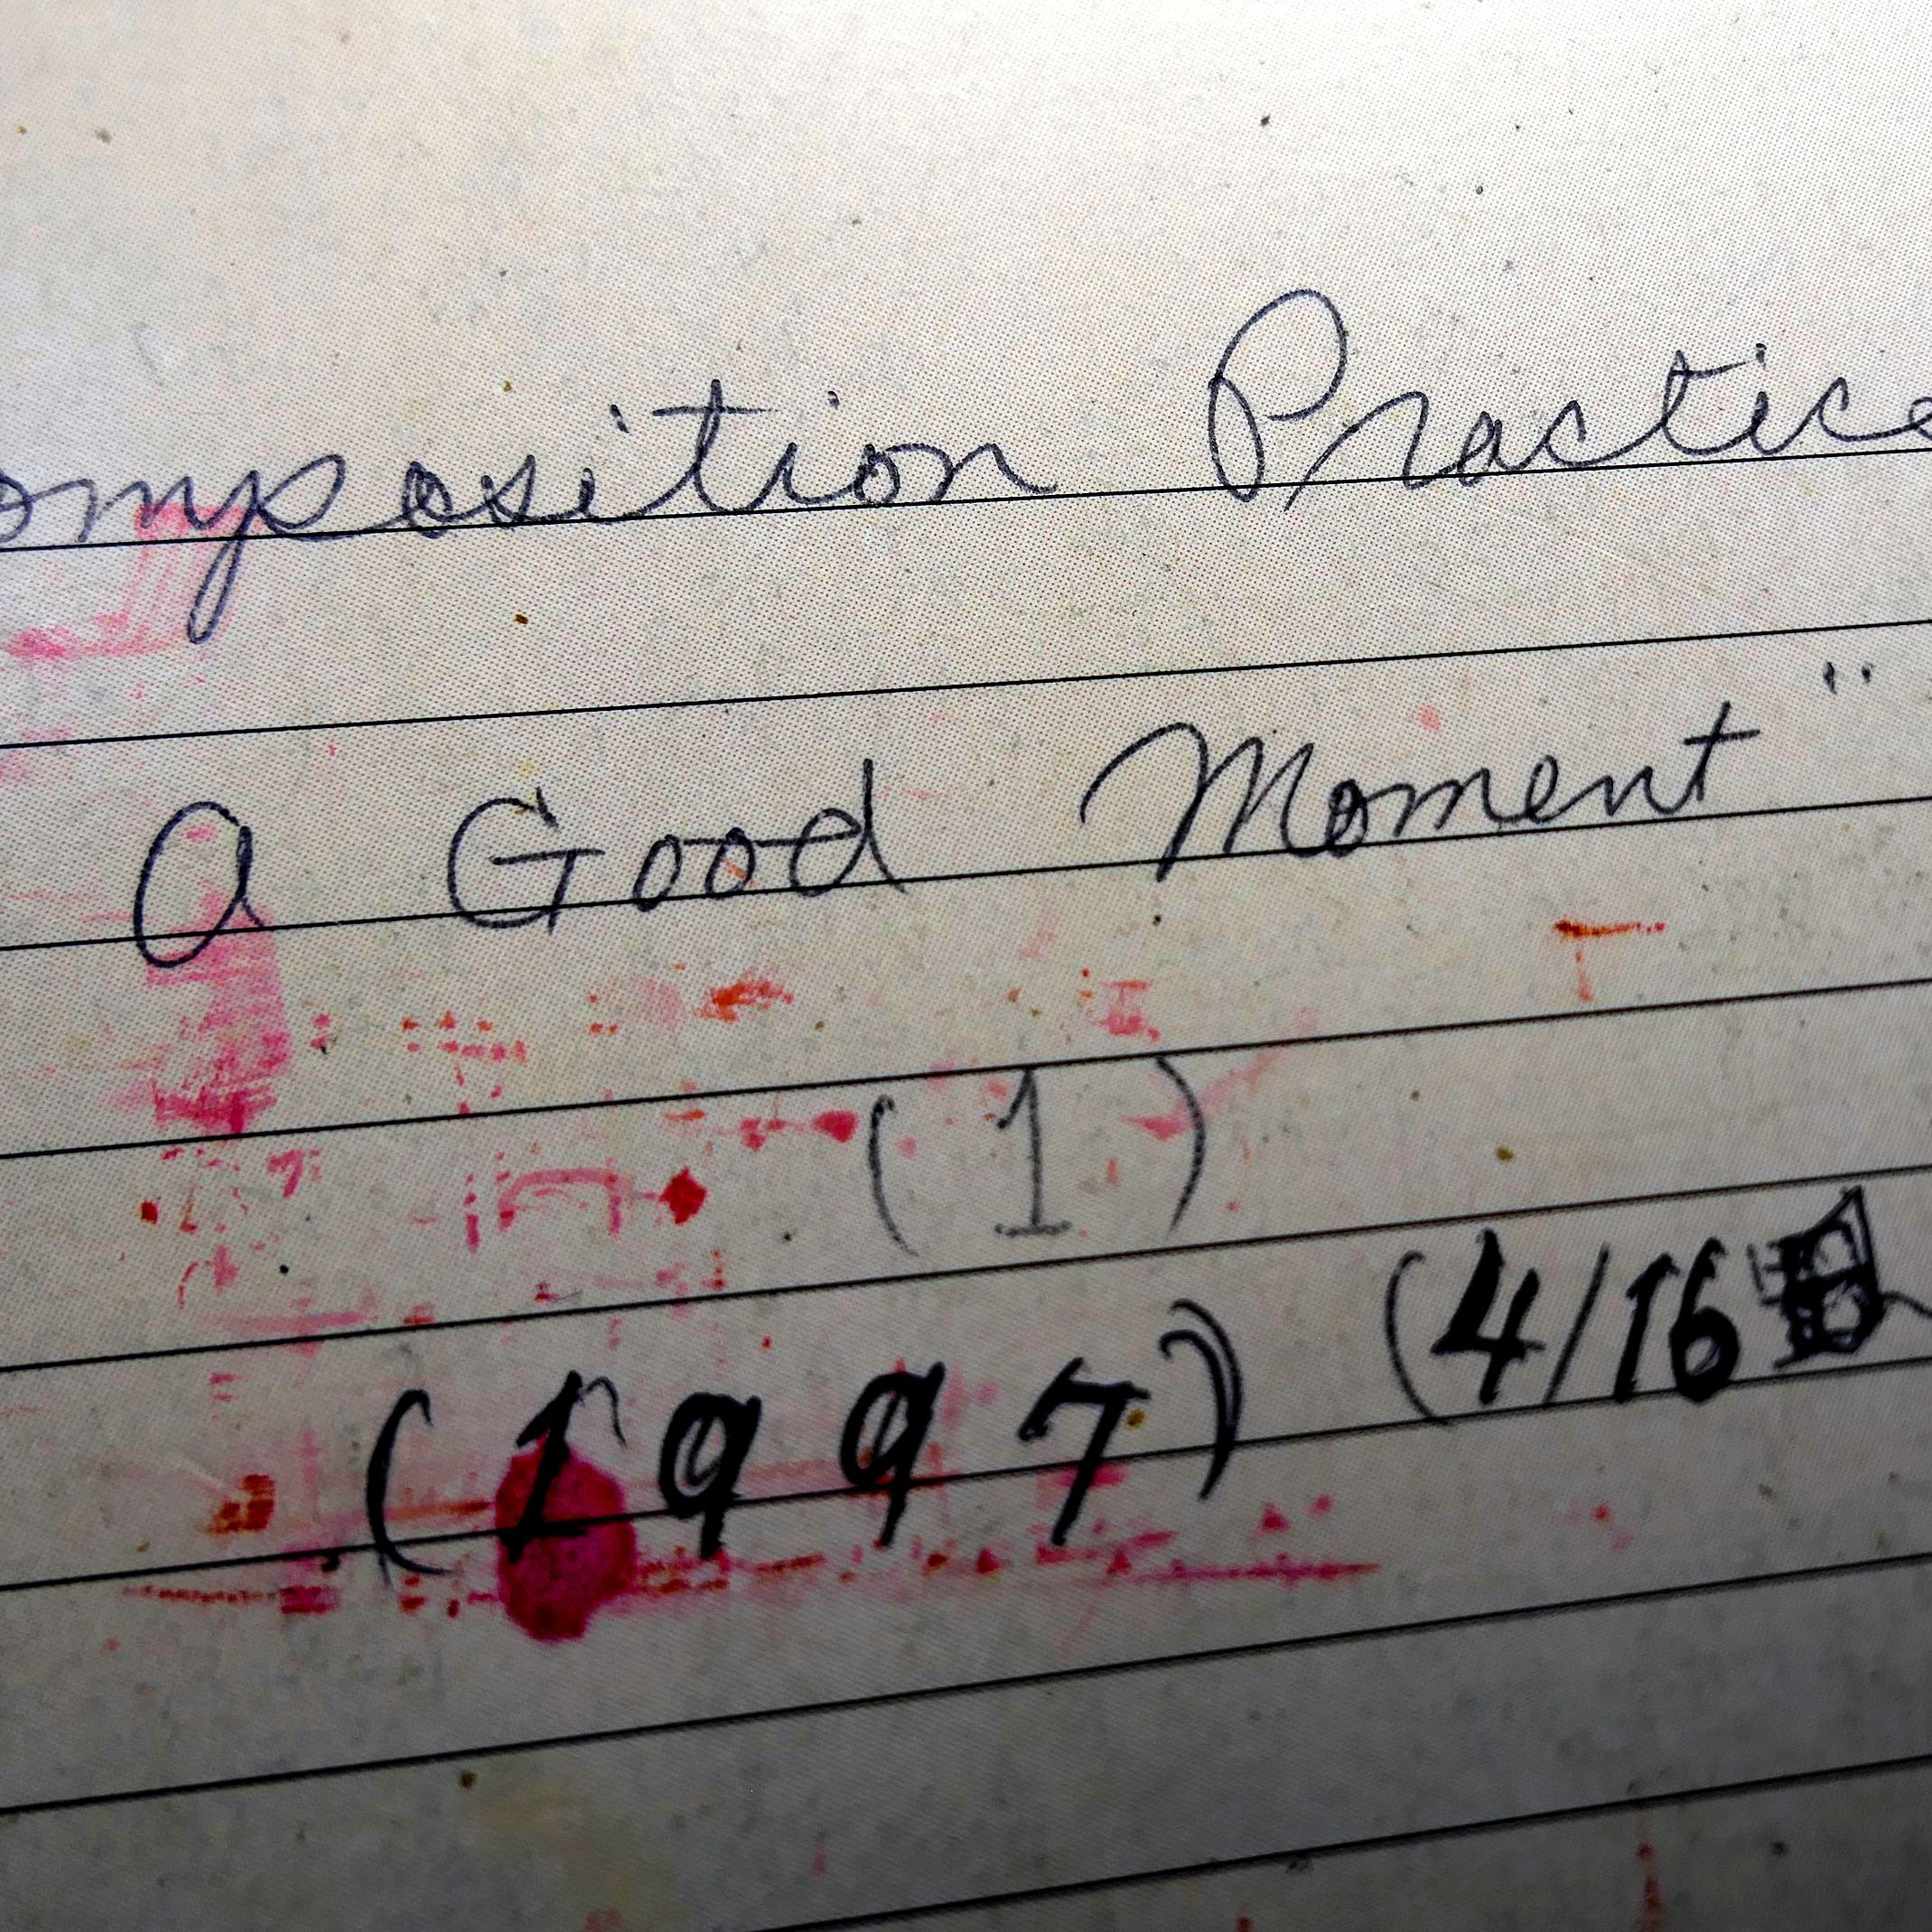 omposition Practice
A Good Moment"
(1)
(4/16
(1997)